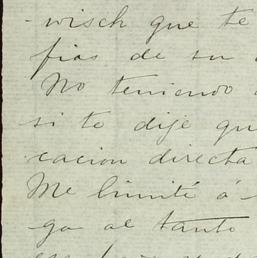 -wisch que te
fias de su
No teniendo
si te dije qu
cacion directa
Me limité á
ga al tanto